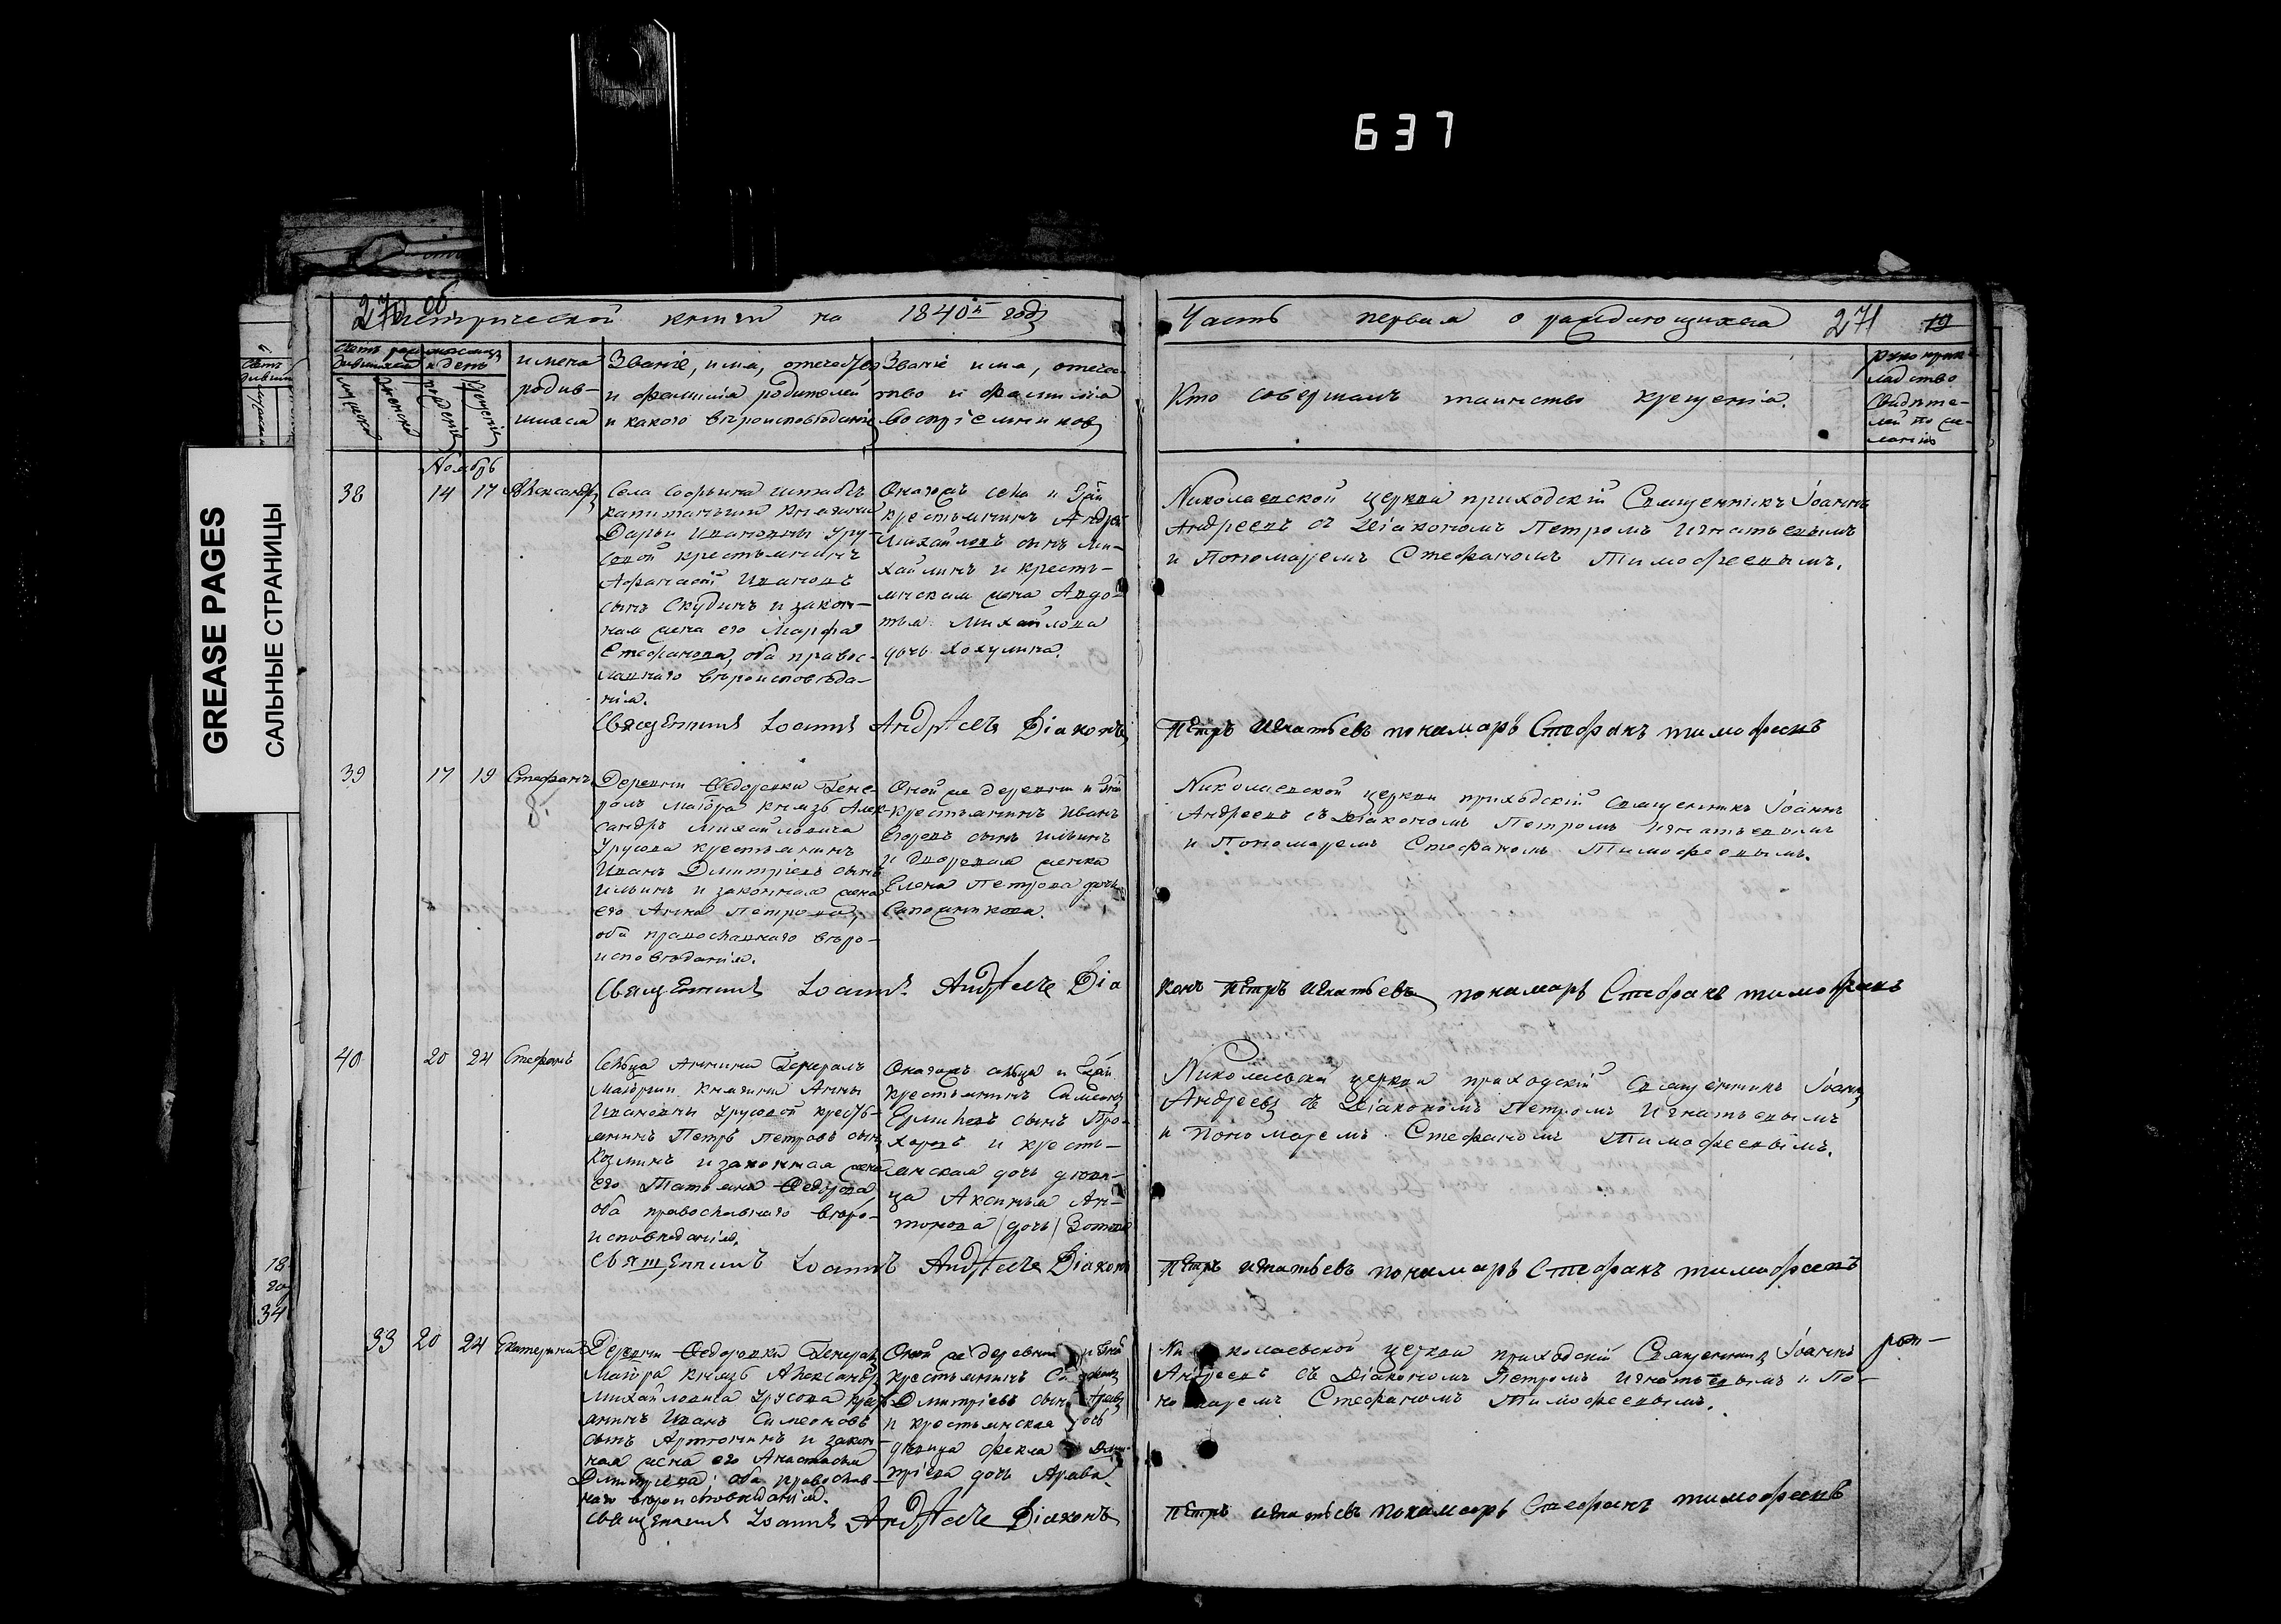 637
GREASE PAGES
САЛЬНЫЕ СТРАНИЦЫ
270 об
метрической книги на 1840й годъ
Часть первая о раждающихся 271 19
имена родив-шихся
Званіе, имя, отечество и фамилія родителей и какого вѣроисповѣданія
Званіе имя, отечество и фамилія воспріемниковъ
Кто совершалъ таинство крещенія.
рукоприк-
ладство
свидѣте-
лей по же-
ланію
Ноябрь
38 14 17 Александръ
Села Софьина штабсъ
капитанши княгини
Дарьи Ивановны Уру-
совой крестьянинъ
Афанасій Ивановъ
сынъ Скудинъ и закон-
ная жена его Марфа
Стефанова, оба правос-
лавнаго вѣроисповѣда-
нія.
Оказаъ села и Гжи
крестьянинъ Андрей
Михайловъ сынъ Ми-
хайлинъ и кресть-
янская жена Авдо-
тья Михайлова
дочь Хохулина.
Николаевской церкви приходскій Священникъ Іоаннъ
Андреевъ съ Діакономъ Петромъ Игнатьевымъ
и Пономаремъ Стефаномъ Тимофеевымъ.
Священникъ Іоаннъ Андреевъ Діаконъ Петръ Игнатьевъ понамарь Стефанъ тимофеевъ
39 17 19 Стефанъ
Деревни Федоровки Гене-
ралъ Маіора князь Алек-
сандръ Михайловича
Урусова крестьянинъ
Иванъ Дмитріевъ сынъ
Ильинъ и законная жена
его Анна Петрова,
оба православнаго вѣро-
исповѣданія.
Оной же деревни и Гна
крестьянинъ Иванъ
Егоровъ сынъ Ильинъ
и дворовая женка
Елена Петрова дочь
Сапожникова.
Николаевской церкви приходскій Священникъ Іоаннъ
Андреевъ съ Діакономъ Петромъ Игнатьевымъ
и Пономаремъ Стефаномъ Тимофеевымъ.
Священникъ Іоаннъ Андреевъ Діа конъ Петръ Игнатьевъ понамарь Стефанъ тимофеевъ
40 20 24 Стефанъ
Сельца Аннина Генералъ
Маіорши Княгини Анны
Ивановны Урусовой кресть-
янинъ Петръ Петровъ сынъ
Козминъ и законная жена
его Татьяна Федорова,
оба православнаго вѣро-
исповѣданія.
крестьянинъ Симеонъ
Ермиловъ сынъ Про-
хоровъ и кресть-
янская дочь дѣви-
ца Аксинья Ан-
тонова (дочь) Зотова
Николаевской церкви приходскій священникъ Іоаннъ
Андреевъ съ Діакономъ Петромъ Игнатьевымъ
и Пономаремъ Стефаномъ Тимофеевымъ.
Священникъ Іоаннъ Андреевъ Діаконъ Петръ Игнатьевъ понамарь Стефанъ тимофеевъ
33 20 24 Екатерина
Деревни Федоровки Генералъ
Маіора князь Александръ
Михайловича Урусова крест-
янинъ Иванъ Симеоновъ
сынъ Артюнинъ и закон-
ная жена его Анастасья
Дмитріева оба православ-
наго вѣроисповѣданія.
Оной же деревни и Гна
крестьянинъ
Дмитріевъ сынъ
и крестьянская дочь
дѣвица Фекла Дми-
тріева дочь
Николаевской церкви приходскій Священникъ Іоаннъ
Андреевъ съ Діакономъ Петромъ Игнатьевымъ и По-
номаремъ Стефаномъ Тимофеевымъ.
Священникъ Іоаннъ Андреевъ Діаконъ Петръ Игнатьевъ понамарь Стефанъ тимофеевъ
18
20
34